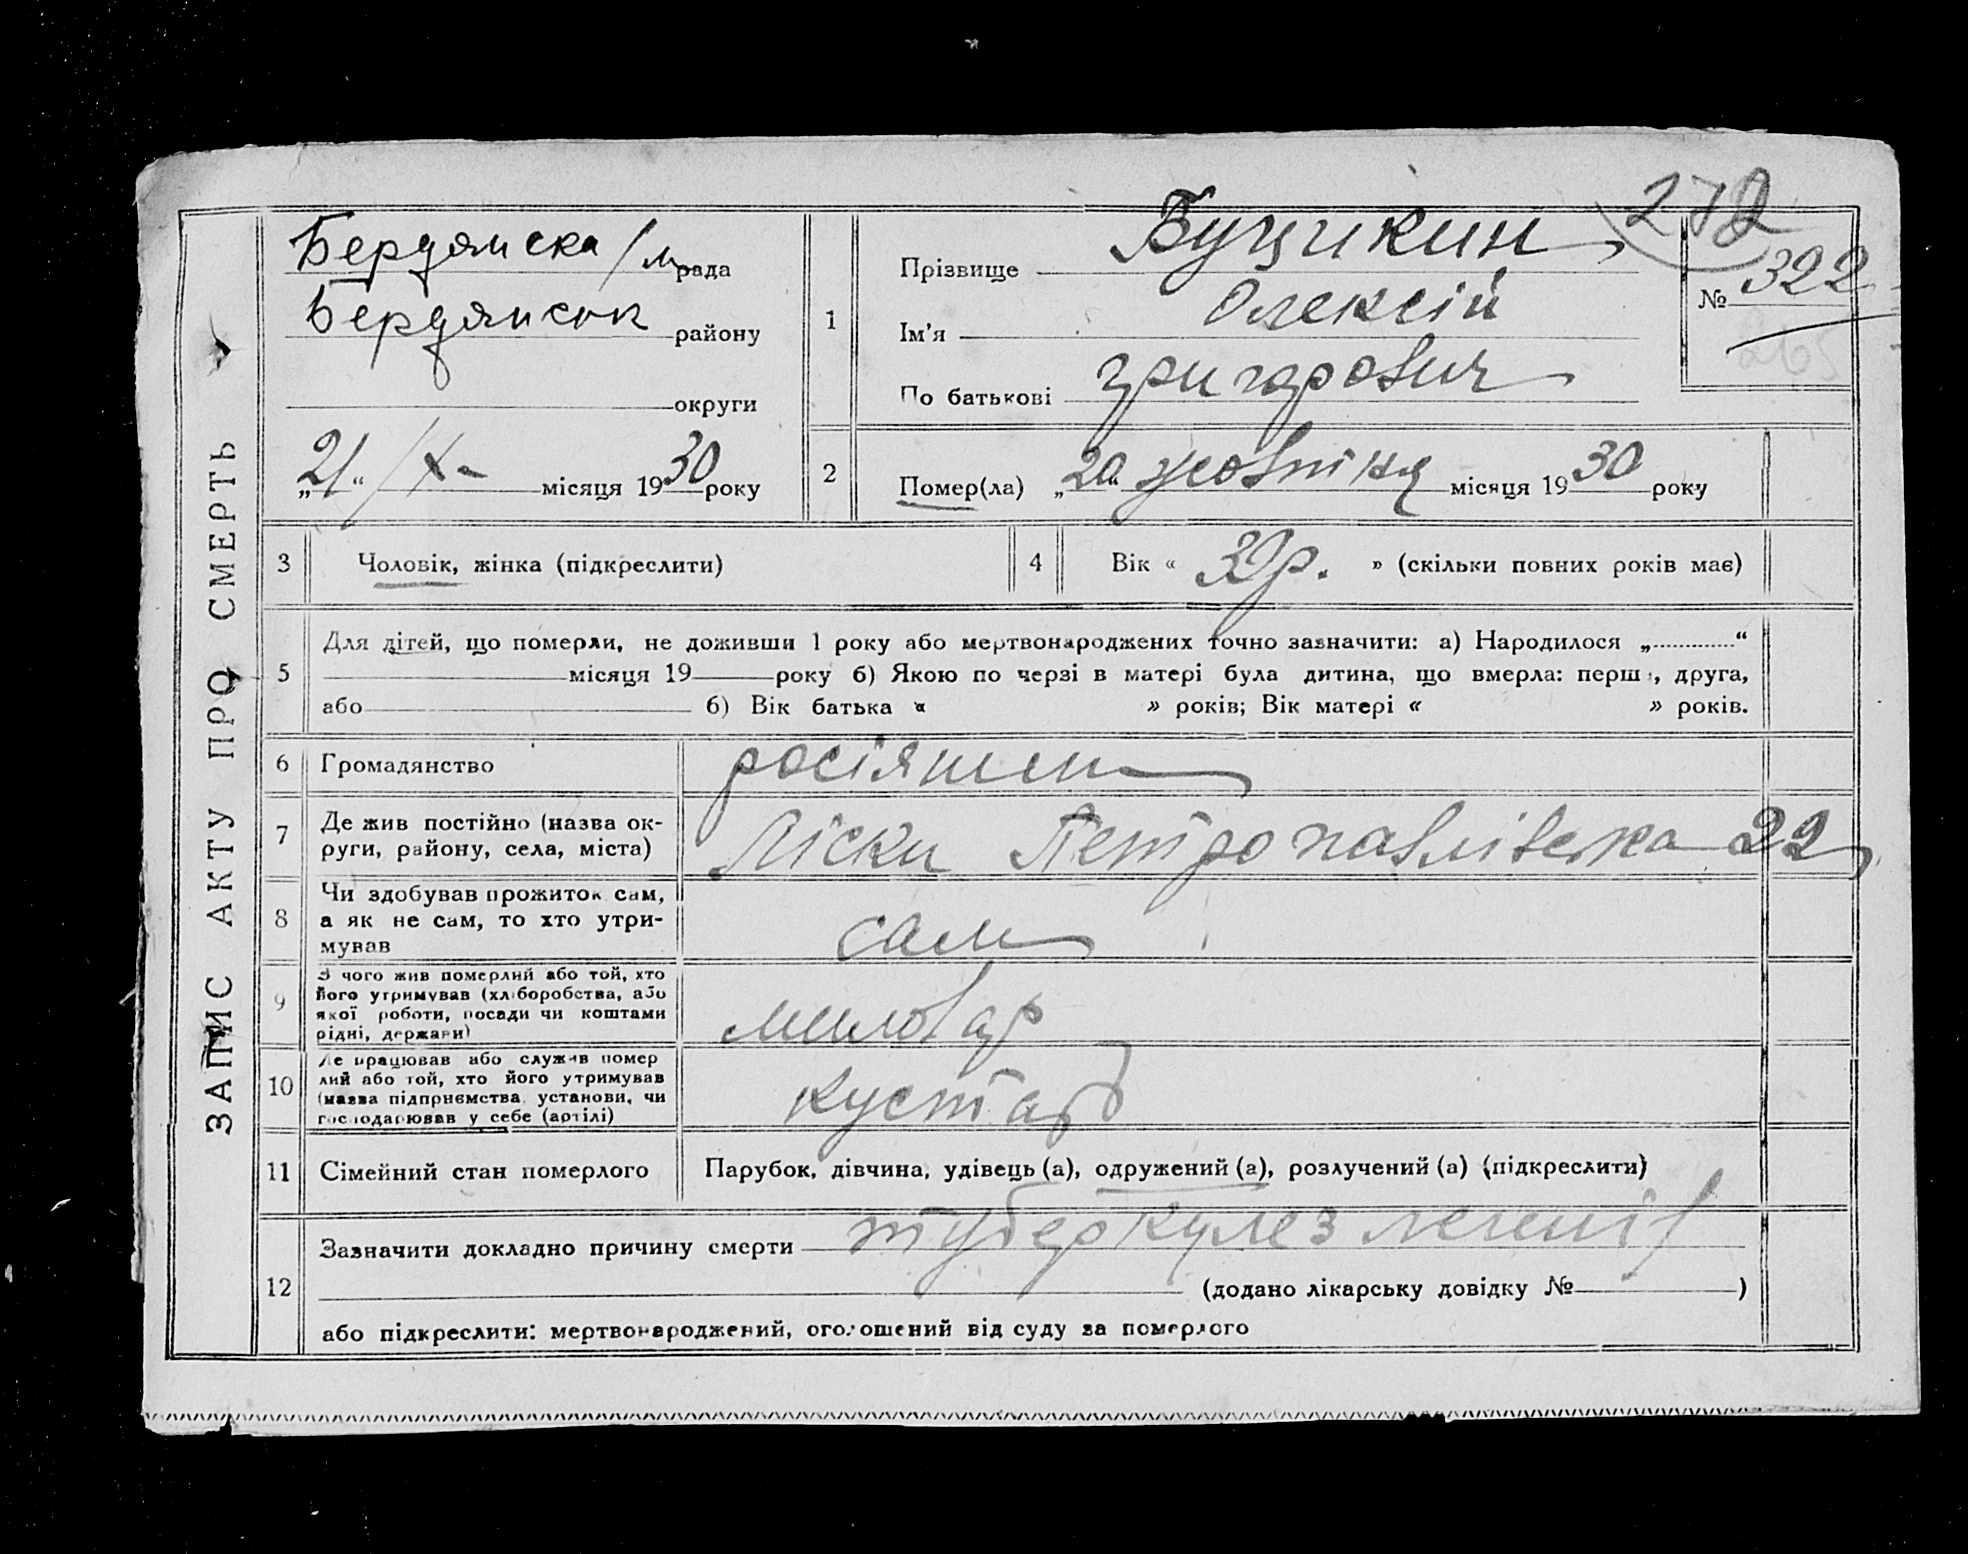 ЗАПИС АКТУ ПРО СМЕРТЬ
Бердянска /м рада
Бердянськ району
округи
„21“ /X- місяця 1930 року
1
Прізвище Буцикин
Ім'я Олексій
По батькові Григорович
272
№ 322
2
Помер(ла) „20“ жовтня місяця 1930 року
3 Чоловік, жінка (підкреслити)
4 Вік « 39р. » (скільки повних років має)
5
Для дітей, що померли, не доживши 1 року або мертвонароджених точно зазначити: а) Народилося „............“
місяця 19 року б) Якою по черзі в матері була дитина, що вмерла: перша, друга,
або б) Вік батька « » років; Вік матері « » років.
6 Громадянство росіянин
7 Де жив постійно (назва ок-
руги, району, села, міста) Ліски Петропавлівська 22
8 Чи здобував прожиток сам,
а як не сам, то хто утри-
мував сам
9 З чого жив померлий або той, хто
його утримував (хліборобства, або
якої роботи, посади чи коштами
рідні, держави) миловар
10 Де працював або служив помер
лий або той, хто його утримував
(назва підприємства, установи, чи
господарював у себе (артілі) кустар
11 Сімейний стан померлого Парубок, дівчина, удівець (а), одружений (а), розлучений (а) (підкреслити)
12
Зазначити докладно причину смерти туберкулез легенів
(додано лікарську довідку № )
або підкреслити: мертвонароджений, оголошений від суду за померлого